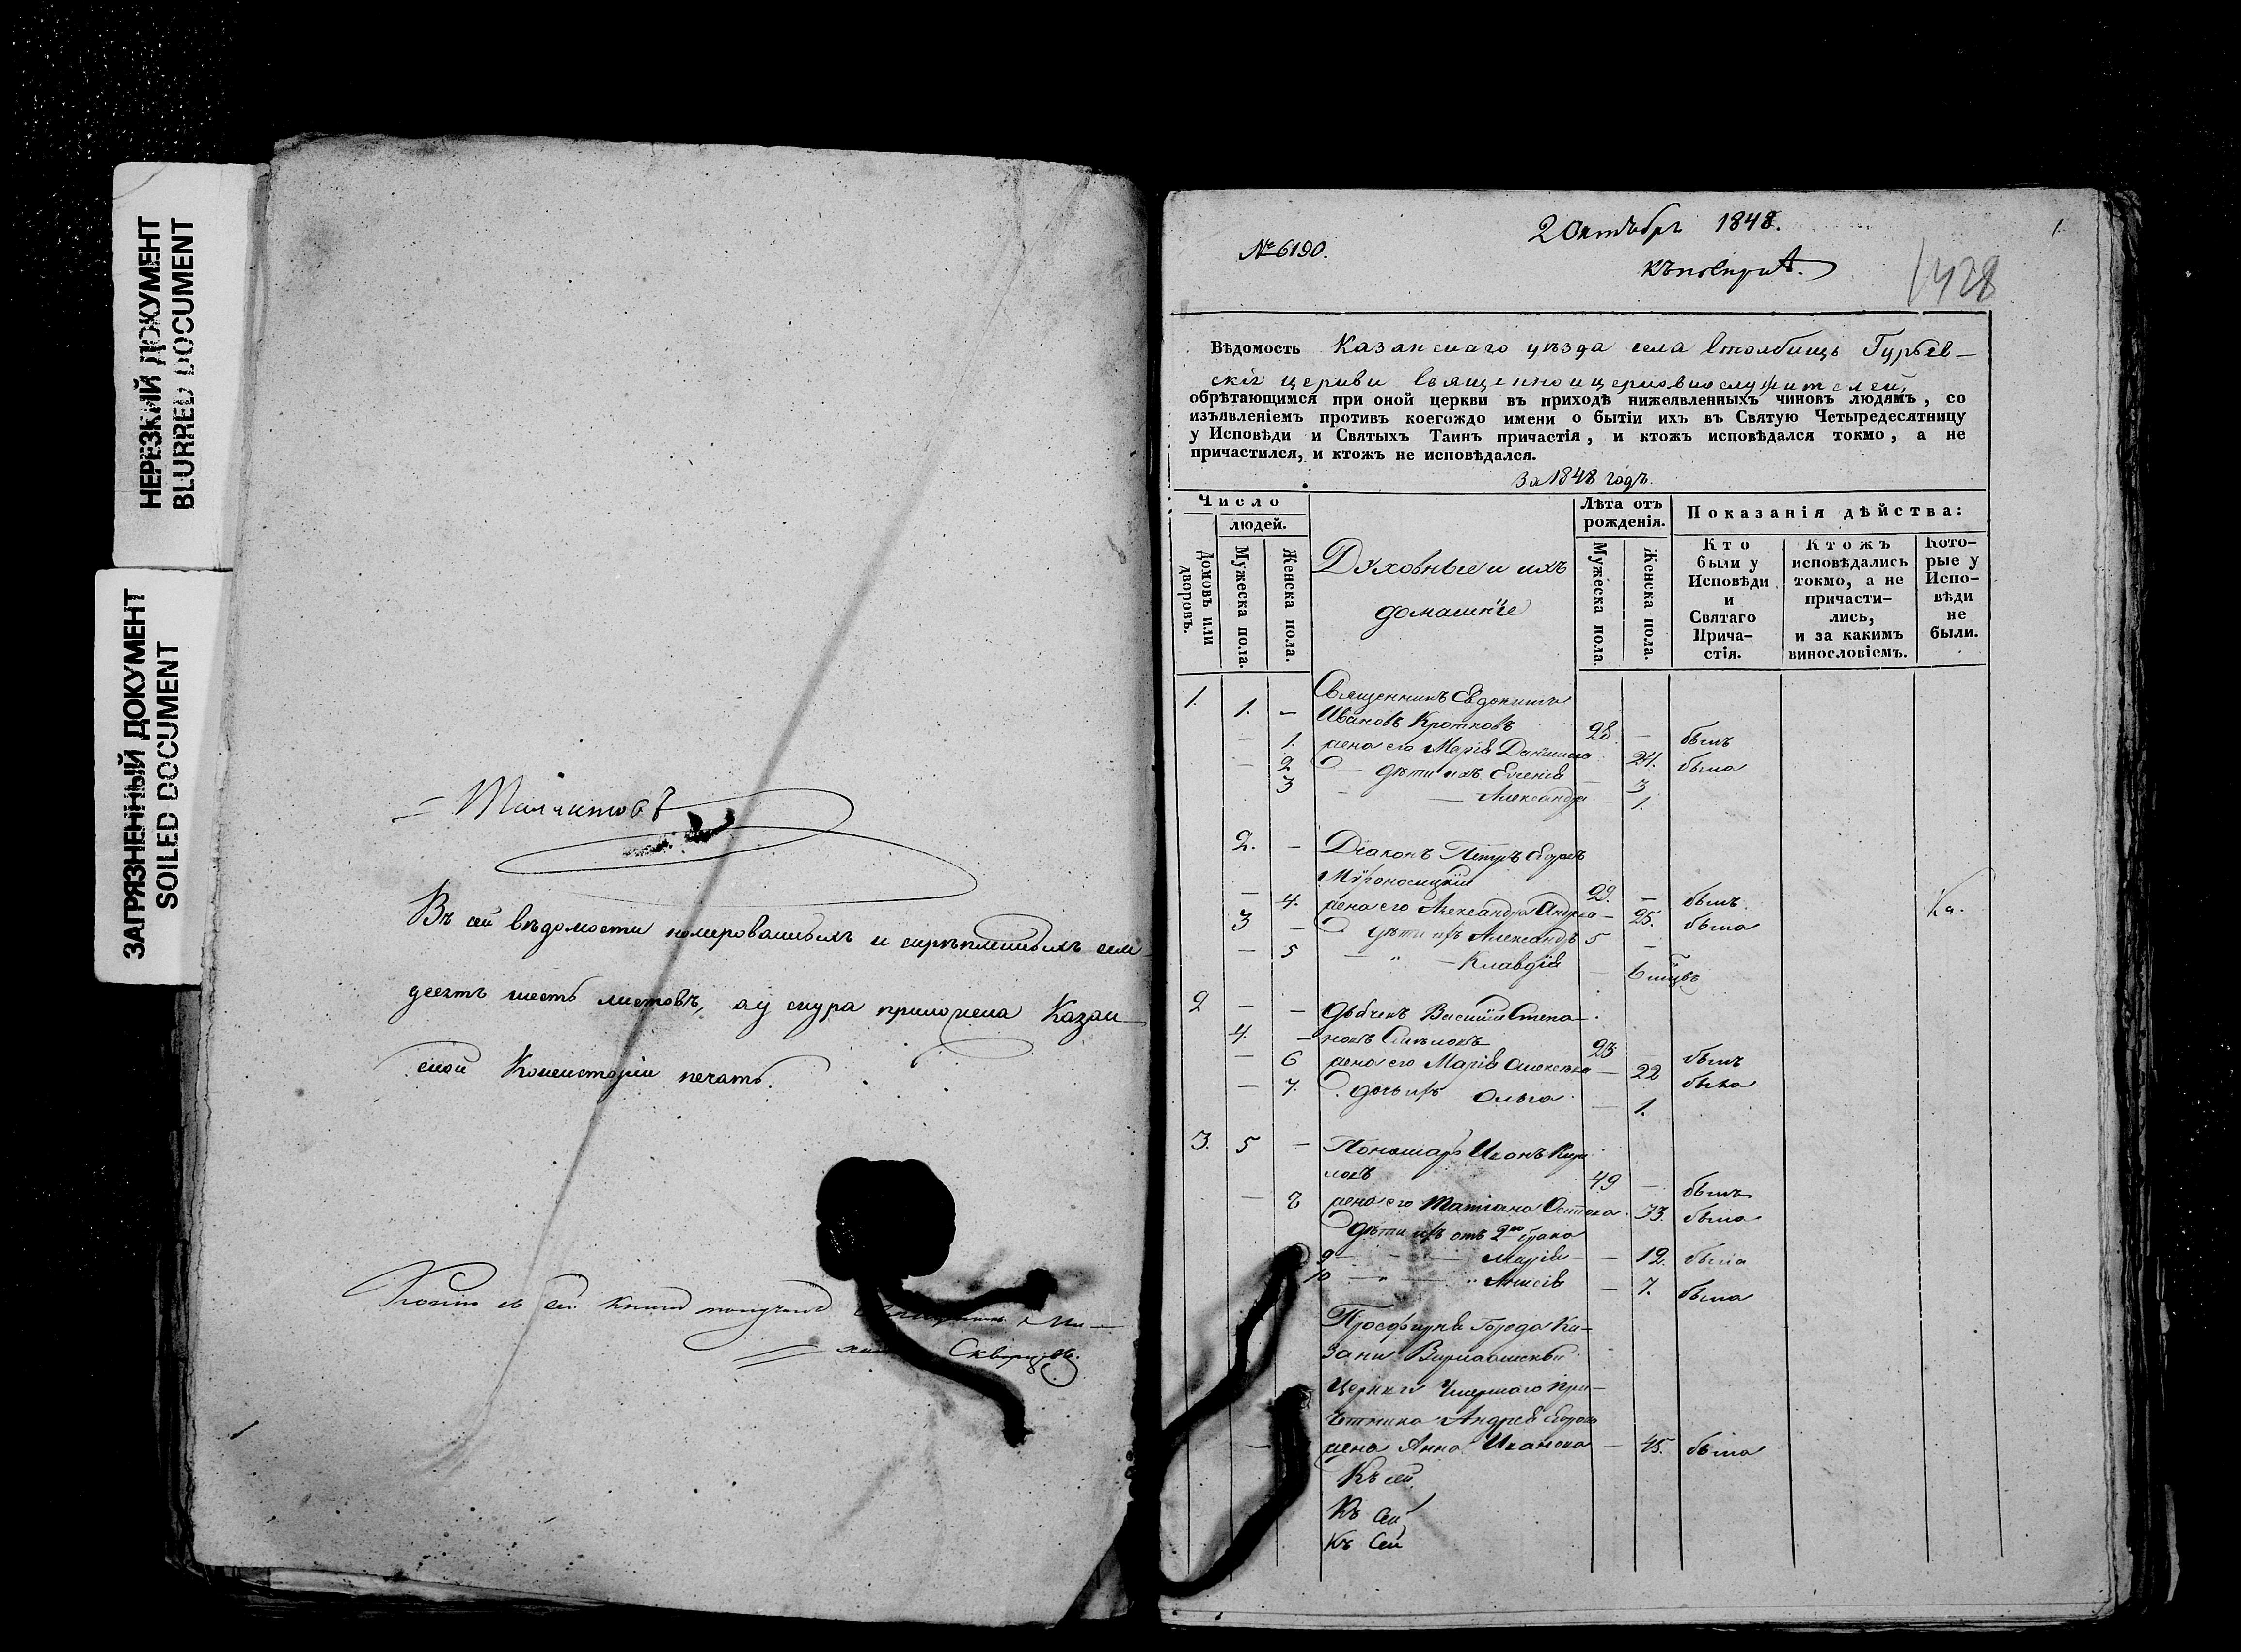 НЕРЕЗКИЙ ДОКУМЕНТ
BLURRED DOCUMENT
ЗАГРЯЗНЕННЫЙ ДОКУМЕНТ
SOILED DOCUMENT
Въ сей вѣдомости номерованныхъ и скрѣпленныхъ сем-
десятъ шесть листовъ, а у снура приложена Казан-
ской Консисторіи печать.
Копію съ сей книги получилъ
Скворцовъ.
№ 6190.
2 Октября 1848.
1.
1428
Вѣдомость Казанскаго уѣзда села Столбищъ Гурьев-
скiя церкви священно и церковно служителей,
обрѣтающимся при оной церкви въ приходѣ нижеявленныхъ чиновъ людямъ, со
изъявленіемъ противъ коегождо имени о бытіи ихъ въ Святую Четыредесятницу
у Исповѣди и Святыхъ Таинъ причастія, и ктожъ исповѣдался токмо, а не
причастился, и ктожъ не исповѣдался.
За 1848 годъ.
Число
людей.
Домовъ или дворовъ.
Мужеска пола.
Женска пола.
Духовные и ихъ
домашніе
Лѣта отъ
рожденія.
Мужеска пола.
Женска пола.
Показанія дѣйства:
Кто
были у
Исповѣди
и
Святаго
Прича-
стія.
Ктожъ
исповѣдались
токмо, а не
причасти-
лись,
и за какимъ
винословіемъ.
Кото-
рые у
Испо-
вѣди
не
были.
1. 1. — Священникъ Евдокимъ
Ивановъ Кротковъ 28. — былъ
— 1. жена его Марія Данилова 24. была
— 2 дѣти ихъ Евгенія — 3
3 — Александра — 1.
2. — Діаконъ Петръ Егоровъ
Мѵроносицкій 29. — былъ
— 4. жена его Александра Андреева — 25. была
3 — дѣти ихъ Александръ 5 —
— 5 — " — Клавдія — 6 мѣсвъ
Ка.
2 — — Дьячекъ Василій Степа-
4. — новъ 23 былъ
— 6 жена его Марія Алексѣева — 22 была
— 7. дочь ихъ Ольга — 1.
3. 5 — Пономарь Иванъ Кири
ловъ 49 — былъ
— 8 жена его Татіана Осипова. 33. была
Дѣти ихъ отъ 2го брака
9 — Марія — 12. была
10 — " — " Анисія — 7. была
Просфирня города Ка-
зани Варлаамской
Церкви Умершаго при-
четника Андрея Егорова
жена Анна Иванова — 45. была
Къ сей
Къ сей
Къ Сей